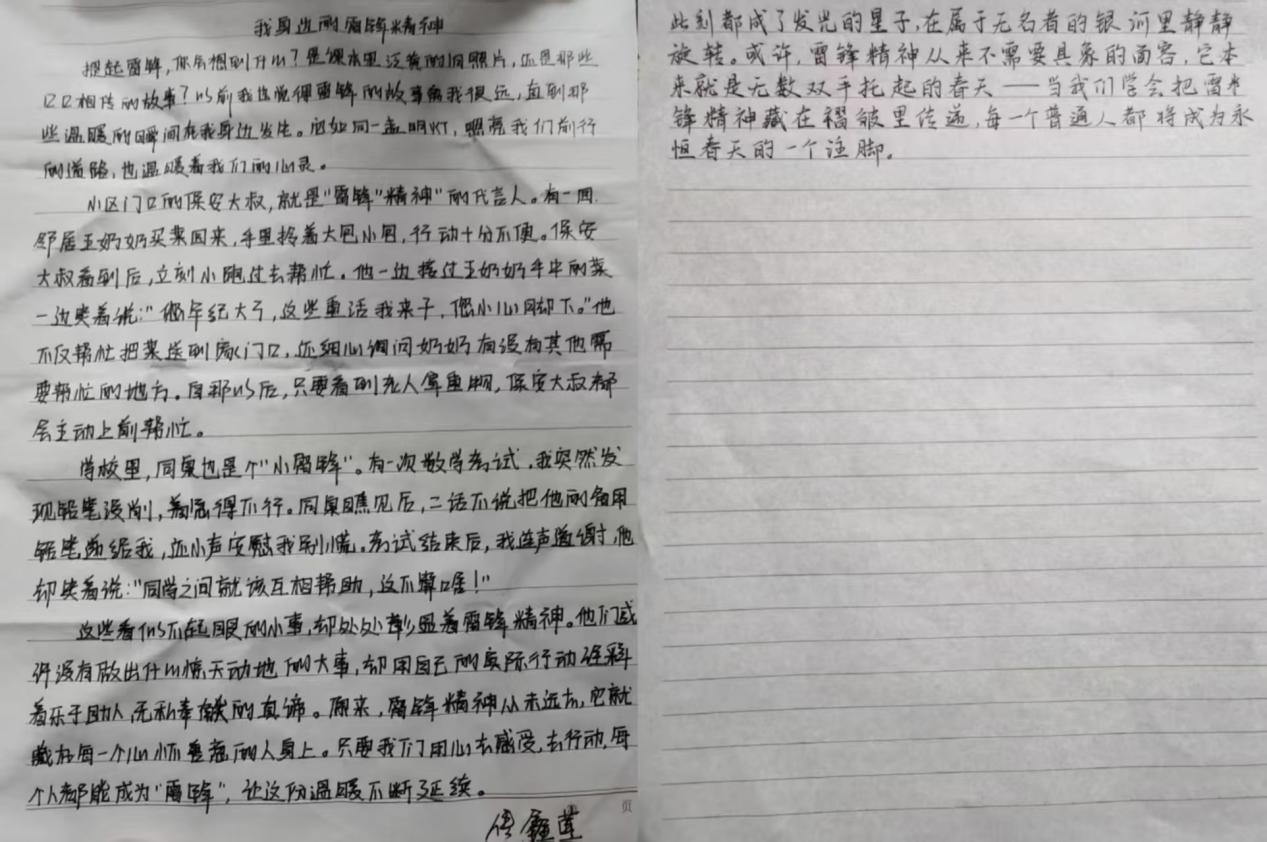 我身边的雷锋精神
提起雷锋,你会想到什么?是课本里泛黄的旧照片,还是那些
口口相传的故事?以前我总觉得雷锋的故事离我很远,直到那
些温暖的瞬间在我身边发生。宛如同一盏明灯,照亮我们前行
的道路,也温暖着我们的心灵。
小区门口的保安大叔,就是"雷锋"精神"的代言人。有一回,
邻居王奶奶买菜回来,手里拎着大包小包,行动十分不便。保安
大叔看到后,立刻小跑过去帮忙。他一边接过王奶奶手中的菜
一边笑着说:"您年纪大了,这些重活我来干,您小心脚下。"他
不仅帮忙把菜送到家门口,还细心询问奶奶有没有其他需
要帮忙的地方。自那以后,只要看到老人拿重物,保安大叔都
会主动上前帮忙。
学校里,同桌也是个"小雷锋"。有一次数学考试,我突然发
现铅笔没削,着急得不行。同桌瞧见后,二话不说把他的备用
铅笔递给我,还小声安慰我别慌。考试结束后,我连声道谢,他
却笑着说:"同学之间就该互相帮助,这不算啥!"
这些看似不起眼的小事,却处处彰显着雷锋精神。他们或
许没有做出什么惊天动地的大事,却用自己的实际行动诠释
着乐于助人,无私奉献的真谛。原来,雷锋精神从未远去,它就
藏在每一个心怀善意的人身上。只要我们用心去感受,去行动,每
个人都能成为"雷锋",让这份温暖不断延续。
页
此刻都成了发光的星子,在属于无名者的银河里静静
旋转。或许,雷锋精神从来不需要具象的面容,它本
来就是无数双手托起的春天——当我们学会把雷
锋精神藏在褶皱里传递,每一个普通人都将成为永
恒春天的一个注脚。